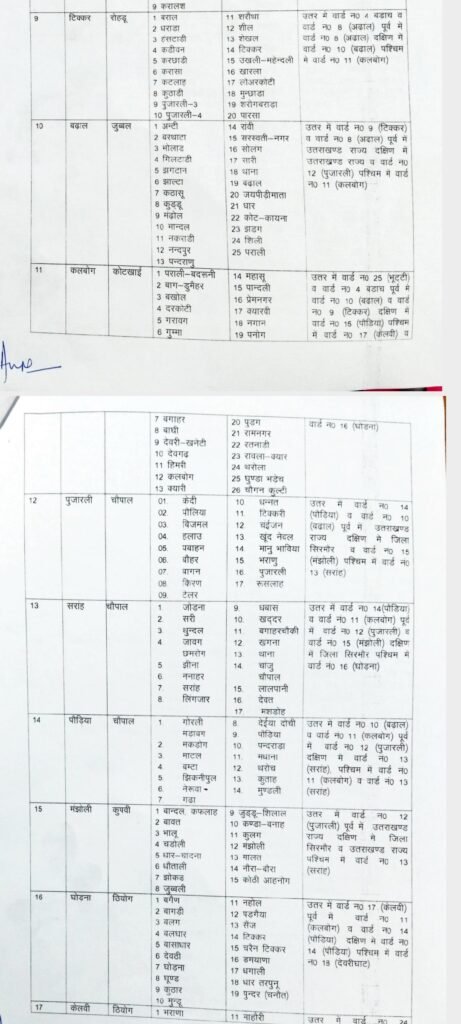 9 करालश
9 टिक्कर रोहडू
1 बराल
2 धराडा
3 हस्टाडी
4 कडीवन
5 करछाडी
6 करासा
7 कटलाह
8 कुठाडी
9 पुजारली-3
10 पुजारली-4
11 शरौंथा
12 शील
13 शेखल
14 टिक्कर
15 उखली-मेहन्दली
16 खारला
17 लोअरकोटी
18 मुन्छाडा
19 शरोगबराडा
20 पारसा
उतर में वार्ड न0 4 बडाच व
वार्ड न0 8 (अढाल) पूर्व में
वार्ड न0 8 (अढाल) दक्षिण में
वार्ड न0 10 (बढाल) पश्चिम
में वार्ड न0 11 (कलबोग)
10 बढ़ाल जुब्बल
1 अन्टी
2 बरथाटा
3 भोलाड
4 गिलटाडी
5 झगटान
6 झाल्टा
7 कठासू
8 कुड्डू
9 मंढ़ोल
10 मान्दल
11 नकराडी
12 नन्दपुर
13 पन्दराणु
14 रावी
15 सरस्वती-नगर
16 सोलग
17 सारी
18 थाना
19 बढाल
20 जयपीडीमाता
21 धार
22 कोट-कायना
23 झडग
24 शिली
25 पराली
उतर में वार्ड न0 9 (टिक्कर)
व वार्ड न0 8 (अढाल) पूर्व में
उत्तराखण्ड राज्य दक्षिण में
उत्तराखण्ड राज्य व वार्ड न0
12 (पुजारली) पश्चिम में वार्ड
न0 11 (कलबोग)
11 कलबोग कोटखाई
1 पराली-बदसनी
2 बाग-डुमैहर
3 बखोल
4 दरकोटी
5 गरावग
6 गुम्मा
14 महासू
15 पान्दली
16 प्रेमनगर
17 क्यारवी
18 नगान
19 पनोग
उतर में वार्ड न0 25 (भूट्टी)
व वार्ड न0 4 बडाच पूर्व में
वार्ड न0 10 (बढाल) व वार्ड
न0 9 (टिक्कर) दक्षिण में
वार्ड न0 15 (पौडिया) पश्चिम
में वार्ड न0 17 (केलवी) व
7 बगाहर
8 बाघी
9 देवरी-खनेटी
10 देवगढ़
11 हिमरी
12 कलबोग
13 क्यारी
20 पुडग
21 रामनगर
22 रतनाडी
23 रावला-क्यार
24 थरोला
25 घुण्डा भडेच
26 चौगन कुल्टी
वार्ड न0 16 (घोडना)
12 पुजारली चौपाल
01 केदी
02 पौलिया
03 बिजमल
04 हलाउ
05 पबाहन
06 बौहर
07 बागन
08 किरण
09. टेलर
10 धन्नत
11. टिक्करी
12 चईजन
13 खूंद नेवल
14 मानु भाविया
15 भराणु
16 पुजारली
17. रूसलाह
उतर में वार्ड न0 14
(पोडिया) व वार्ड न0 10
(बढाल) पूर्व में उत्तराखण्ड
राज्य दक्षिण में जिला
सिरमौर व वार्ड न0 15
(मंझोली) पश्चिम में वार्ड न0
13 (सरांह)
13 सरांह चौपाल
1. जोडना
2. सरी
3. धुन्दल
4 जावग
छमरोग
5 झीना
6 ननाहर
7. सरांह
8. लिंगजार
9. धबास
10. खद्दर
11. बगाहरचौकी
12. खगना
13 थाना
14. चाजु
चौपाल
15. लालपानी
16. देवत
17. मशडोह
उतर में वार्ड न0 14(पोडिया)
व वार्ड न0 11 (कलबोग) पूर्व
में वार्ड न0 12 (पुजारली) व
वार्ड न0 15 (मंझोली) दक्षिण
में जिला सिरमौर पश्चिम में
वार्ड न0 16 (घोडना)
14 पौडिया चौपाल
1. गोरली
मडावग
2. मकडोग
3. माटल
4. बम्टा
5. झिकनीपुल
6. नेरूवा
7. गढा
8. देईया दोची
9. पौडिया
10. पन्दराडा
11. मधाना
12. थरोच
13. कुताह
14. मुण्डली
उतर में वार्ड न0 10 (बढाल)
व वार्ड न0 11 (कलबोग) पूर्व
में वार्ड न0 12 (पुजारली)
दक्षिण में वार्ड न0 13
(सरांह), पश्चिम में वार्ड न0
11 (कलबोग) व वार्ड न0 13
(सरांह)
15 मंझोली कुपवी
1 बान्दल कफलाह
2 बावत
3 भालू
4 चडोली
5 धार-चादना
6 धौताली
7 झोकड
8 जुब्बली
9 जुड्डू-शिलाल
10 कण्डा-बनाह
11 कुलग
12 मझोली
13 मालत
14 नौरा-बौरा
15 कोठी आहनोग
उतर में वार्ड न0 12
(पुजारली) पूर्व में उतराखण्ड
राज्य दक्षिण में जिला
सिरमौर व उत्तराखण्ड राज्य
पश्चिम में वार्ड न0 13
(सरांह)
16 घोडना ठियोग
1 बगैण
2 बागडी
3 बलग
4 बलघार
5 बासाधार
6 देवठी
7 घोडना
8 घूण्ड
9 कुठार
10 मुन्डू
11 नहोल
12 पडगैया
13 सैंज
14 टिक्कर
15 चरैन टिक्कर
16 डमयाणा
17 धगाली
18 धार तरपुनू
19 पुन्दर (चनोत)
उतर में वार्ड न0 17 (केलवी)
पूर्व में वार्ड न0 11
(कलबोग) व वार्ड न0 14
(पौडिया) दक्षिण में वार्ड न0
14 (पौडिया) पश्चिम में वार्ड
न0 18 (देवरीघाट)
17 केलवी ठियोग
1 भराणा
11 नाहौरी
उतर में वार्ड न0 24